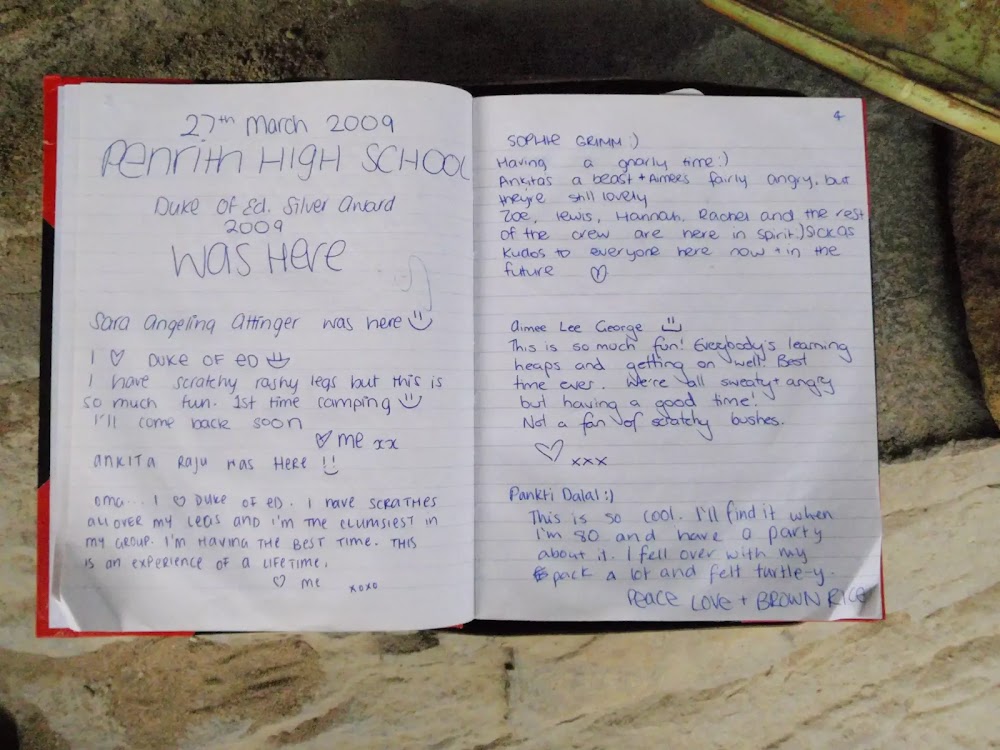 27th March 2009
Penrith HIGH SCHOOL
Duke of Ed. Silver Award
2009
Was Here
Sara Angelina Attinger was here
I ♡ DUKE OF ED
I have scratchy rashy legs but this is
so much fun. 1st time camping
I'll come back soon
♡ me xx
ANKITA RAJU WAS HERE !!
OMG... I ♡ DUKE OF ED. I HAVE SCRATHES
ALL OVER MY LEGS AND I'M THE CLUMSIEST IN
MY GROUP. I'M HAVING THE BEST TIME. THIS
IS AN EXPERIENCE OF A LIFETIME.
♡ ME xoxo
4
SOPHIE GRIMM :)
Having a gnarly time :)
Ankitas a beast + Aimees fairly angry, but
they're still lovely
Zoe, lewis, Hannah, Rachel and the rest
of the crew are here in spirit :) SICK AS
Kudos to everyone here now + in the
future ♡
Aimee Lee George
This is so much fun! Everybody's learning
heaps and getting on well! Best
time ever. We're all sweaty + angry
but having a good time!
Not a fan of scratchy bushes.
♡ xxx
Pankti Dalal :)
This is so cool. I'll find it when
I'm 80 and have a party
about it. I fell over with my
pack a lot and felt turtle-y.
PEACE LOVE + BROWN RICE